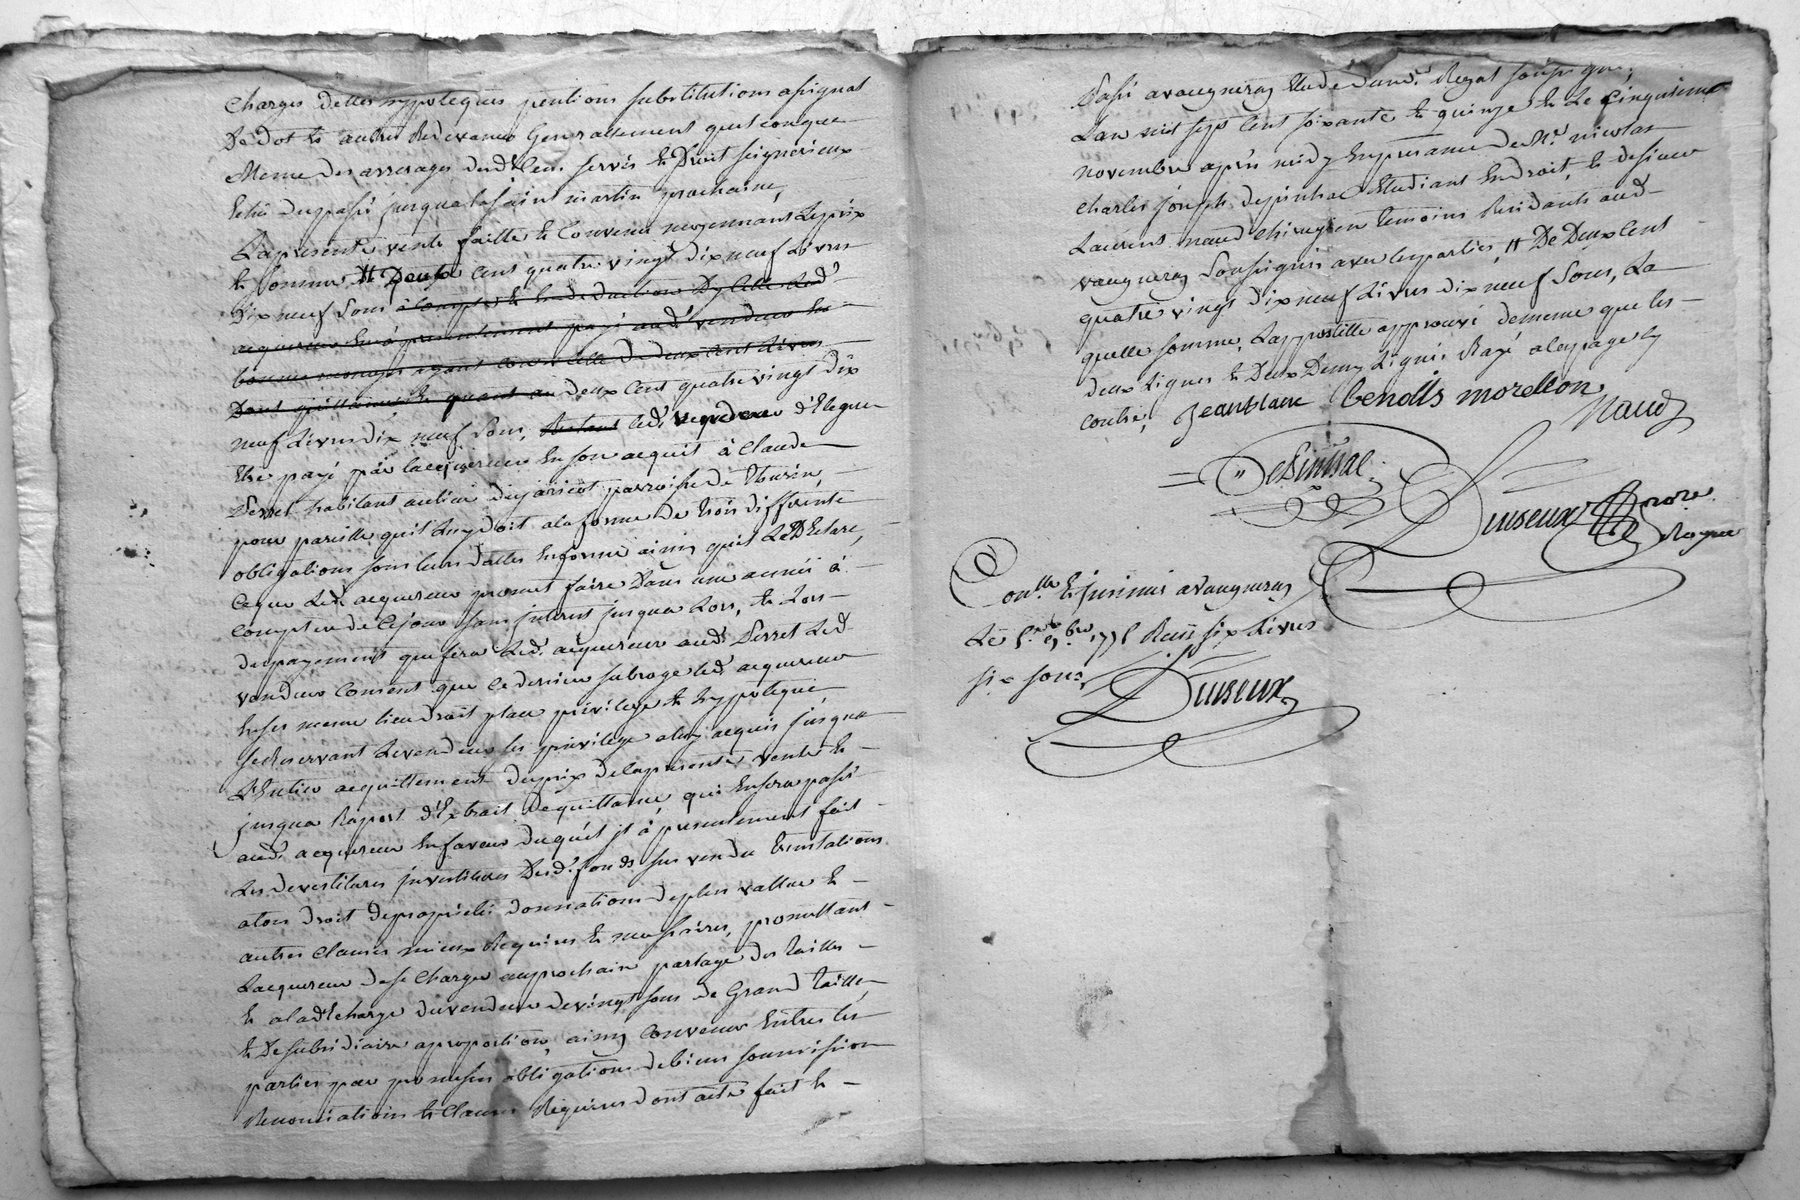 charges dettes hypoteques pentions substitutions asignat
De dot et autres Redevances Generallement quelconque
Meme des arrerages desd. Cens servis et Droit seigneriaux
Echu du passé jusqua la saint martin prochaine,
La presente vente faitte et Convenue moyennant Le prix
et somme # Deux Cent quatre vingt dix neuf Livres
Dix neuf sous a Compte et En deduction Led.
acquereur à presentement payé aud. vendeur En
bonne monoye ayant Cours Celle de deux Cent Livres
Dont quittance Et quant au deux Cent quatre vingt Dix
neuf Livres dix neuf sous, Restant led. vendeur Elegue
Etre payé par lacquereur En son acquit à Claude
Perret habitant au lieu du jaricot parroisse de thurin,
pour pareille quil Luy doit a la forme de trois differente
obligations sous leurs dattes En forme ainsy quil Le Declare,
Ceque Led. acquereur promet faire Dans une année à
Compter de Cejour sans interest jusqua Lors, Et Lors
du payement que fera Led. acquereur aud. Perret Led.
vendeur Consent que Ce dernier subroge led. acquereur
En ses meme lieu droit place privilege et hypoteque
se Reservant Le vendeur ses privilege a luy acquis jusqua
L'Entier acquittement du prix de la presente vente et
jusqua Raport d'Extrait de quittance qui En sera passé
aud. acquereur En faveur duquel il à presentement fait
Les devestitures investitures Desd. fonds sus vendu
droit de proprieté donnations de plus vallue et
autres Clauses mieux Requises et necessaires, promettant
Lacquereur de se Charger au prochain partage des tailles
et a la decharge du vendeur de vingt sous de Grand taille,
et De subsidiaire a proportion, ainsy Convenu Entres les
parties par promesses obligations de biens soumission
Renonciations et Clauses Requises dont acte fait et
Passé a vaugneray Etude dud. Nre. Royal soussigné,
Lan mil sept Cent soixante et quinze Et Le Cinquieme
novembre après midy En presance de Sr. nicolas
Charles joseph depinhac Etudiant En droit, et de sieur
Laurent naud chirugien temoins Residants aud.
vaugneray soussignés avec les parties, # De Deux Cent
quatre vingt dix neuf Livres dix neuf sous, La
quelle somme, Lappostille approuvé de meme que les
deux Lignes et Deux Demy Lignes Rayé a la page cy
Contre, Jean blanc benoits morellon
Naud
Depinhac
Duiseux Nore.
Royal
Conllé. Et jnsinué a vaugneray
Le 5.e 9.bre 1775 Reçu six Livres
six sous
Duiseux